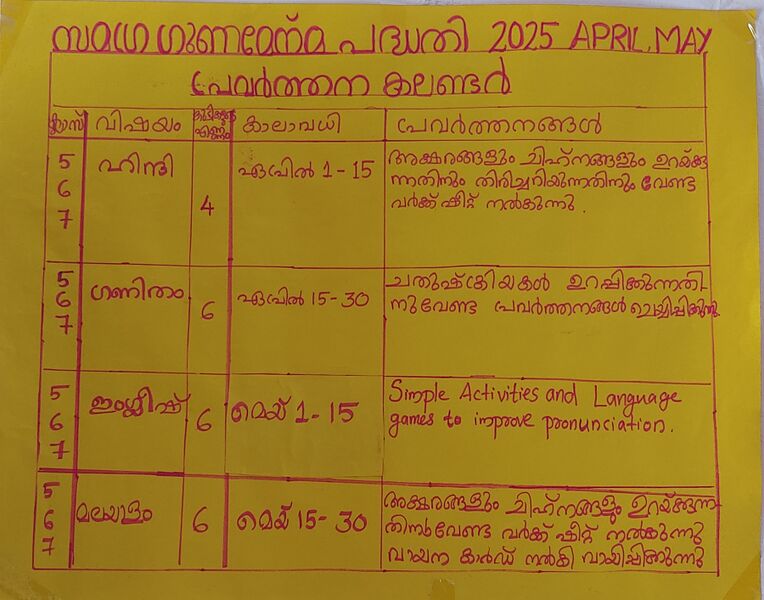 സമഗ്ര ഗുണമേന്മ പദ്ധതി 2025 APRIL, MAY
പ്രവർത്തന കലണ്ടർ
ക്ലാസ് വിഷയം കുട്ടികളുടെ എണ്ണം കാലാവധി പ്രവർത്തനങ്ങൾ
5 6 7 ഹിന്ദി 4 ഏപ്രിൽ 1 - 15
അക്ഷരങ്ങളും ചിഹ്നങ്ങളും ഉറയ്ക്കു
ന്നതിനും തിരിച്ചറിയുന്നതിനും വേണ്ട
വർക്ക് ഷീറ്റ് നൽകുന്നു.
5 6 7 ഗണിതം 6 ഏപ്രിൽ 15 - 30
ചതുഷ്ക്രിയകൾ ഉറപ്പിക്കുന്നതി-
നുവേണ്ട പ്രവർത്തനങ്ങൾ ചെയ്യിപ്പിക്കുന്നു.
5 6 7 ഇംഗ്ലീഷ് 6 മെയ് 1 - 15
Simple Activities and Language
games to improve pronunciation.
5 6 7 മലയാളം 6 മെയ് 15 - 30
അക്ഷരങ്ങളും ചിഹ്നങ്ങളും ഉറയ്ക്കുന്ന-
തിനുവേണ്ട വർക്ക് ഷീറ്റ് നൽകുന്നു
വായന കാർഡ് നൽകി വായിപ്പിക്കുന്നു